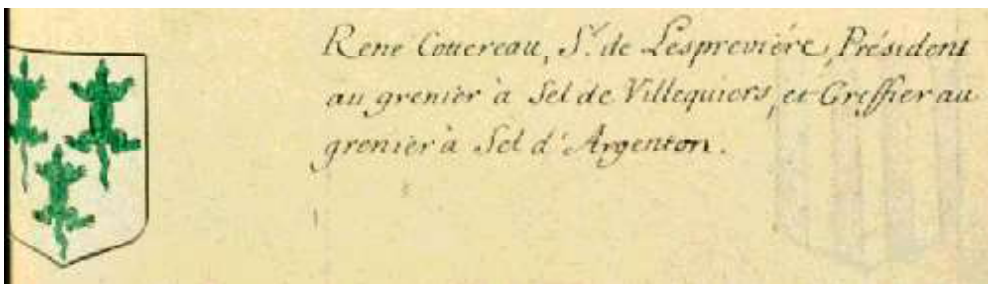 René Cottereau, Sr. de Lespreviére, Président
au grenier à Sel de Villequiers, et Greffier au
grenier à Sel d'Argenton.